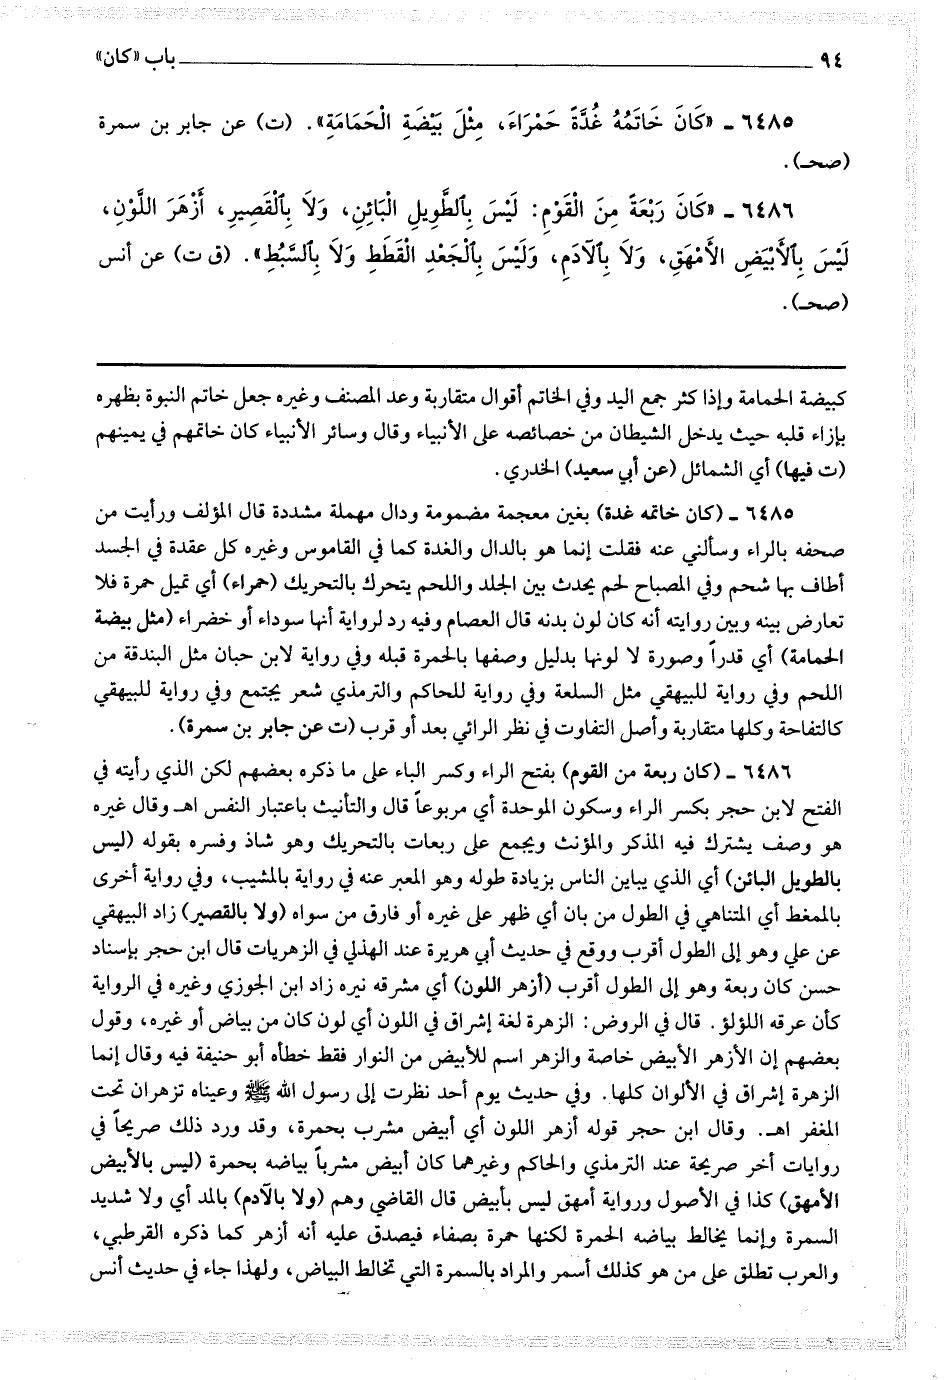 ٩٤ باب «كان»
٦٤٨٥ ـ «كَانَ خَاتَمُهُ غُدَّةً حَمْرَاءَ، مِثْلَ بَيْضَةِ الْحَمَامَةِ». (ت) عن جابر بن سمرة
(صحـ).
٦٤٨٦ ـ «كَانَ رَبْعَةً مِنَ الْقَوْمِ: لَيْسَ بِٱلطَّوِيلِ الْبَائِنِ، وَلاَ بِٱلْقَصِيرِ، أَزْهَرَ اللَّوْنِ،
لَيْسَ بِٱلأَبْيَضِ الأَمْهَقِ، وَلاَ بِٱلآدَمِ، وَلَيْسَ بِٱلْجَعْدِ الْقَطَطِ وَلاَ بِٱلسَّبْطِ». (ق ت) عن أنس
(صحـ).
كبيضة الحمامة وإذا كثر جمع اليد وفي الخاتم أقوال متقاربة وعد المصنف وغيره جعل خاتم النبوة بظهره
بإزاء قلبه حيث يدخل الشيطان من خصائصه على الأنبياء وقال وسائر الأنبياء كان خاتمهم في يمينهم
(ت فيها) أي الشمائل (عن أبي سعيد) الخدري.
٦٤٨٥ ـ (كان خاتمه غدة) بغين معجمة مضمومة ودال مهملة مشددة قال المؤلف ورأيت من
صحفه بالراء وسألني عنه فقلت إنما هو بالدال والغدة كما في القاموس وغيره كل عقدة في الجسد
أطاف بها شحم وفي المصباح لحم يحدث بين الجلد واللحم يتحرك بالتحريك (حمراء) أي تميل حمرة فلا
تعارض بينه وبين روايته أنه كان لون بدنه قال العصام وفيه رد لرواية أنها سوداء أو خضراء (مثل بيضة
الحمامة) أي قدراً وصورة لا لونها بدليل وصفها بالحمرة قبله وفي رواية لابن حبان مثل البندقة من
اللحم وفي رواية للبيهقي مثل السلعة وفي رواية للحاكم والترمذي شعر يجتمع وفي رواية للبيهقي
كالتفاحة وكلها متقاربة وأصل التفاوت في نظر الرائي بعد أو قرب (ت عن جابر بن سمرة).
٦٤٨٦ ـ (كان ربعة من القوم) بفتح الراء وكسر الباء على ما ذكره بعضهم لكن الذي رأيته في
الفتح لابن حجر بكسر الراء وسكون الموحدة أي مربوعاً قال والتأنيث باعتبار النفس اهـ وقال غيره
هو وصف يشترك فيه المذكر والمؤنث ويجمع على ربعات بالتحريك وهو شاذ وفسره بقوله (ليس
بالطويل البائن) أي الذي يباين الناس بزيادة طوله وهو المعبر عنه في رواية بالمشيب، وفي رواية أخرى
بالممغط أي المتناهي في الطول من بان أي ظهر على غيره أو فارق من سواه (ولا بالقصير) زاد البيهقي
عن علي وهو إلى الطول أقرب ووقع في حديث أبي هريرة عند الهذلي في الزهريات قال ابن حجر بإسناد
حسن كان ربعة وهو إلى الطول أقرب (أزهر اللون) أي مشرقه نيره زاد ابن الجوزي وغيره في الرواية
كأن عرقه اللؤلؤ. قال في الروض: الزهرة لغة إشراق في اللون أي لون كان من بياض أو غيره، وقول
بعضهم إن الأزهر الأبيض خاصة والزهر اسم للأبيض من النوار فقط خطأه أبو حنيفة فيه وقال إنما
الزهرة إشراق في الألوان كلها. وفي حديث يوم أحد نظرت إلى رسول الله ﷺ وعيناه تزهران تحت
المغفر اهـ. وقال ابن حجر قوله أزهر اللون أي أبيض مشرب بحمرة، وقد ورد ذلك صريحاً في
روايات أخر صريحة عند الترمذي والحاكم وغيرهما كان أبيض مشرباً بياضه بحمرة (ليس بالأبيض
الأمهق) كذا في الأصول ورواية أمهق ليس بأبيض قال القاضي وهم (ولا بالآدم) بالمد أي ولا شديد
السمرة وإنما يخالط بياضه الحمرة لكنها حمرة بصفاء فيصدق عليه أنه أزهر كما ذكره القرطبي،
والعرب تطلق على من هو كذلك أسمر والمراد بالسمرة التي تخالط البياض، ولهذا جاء في حديث أنس